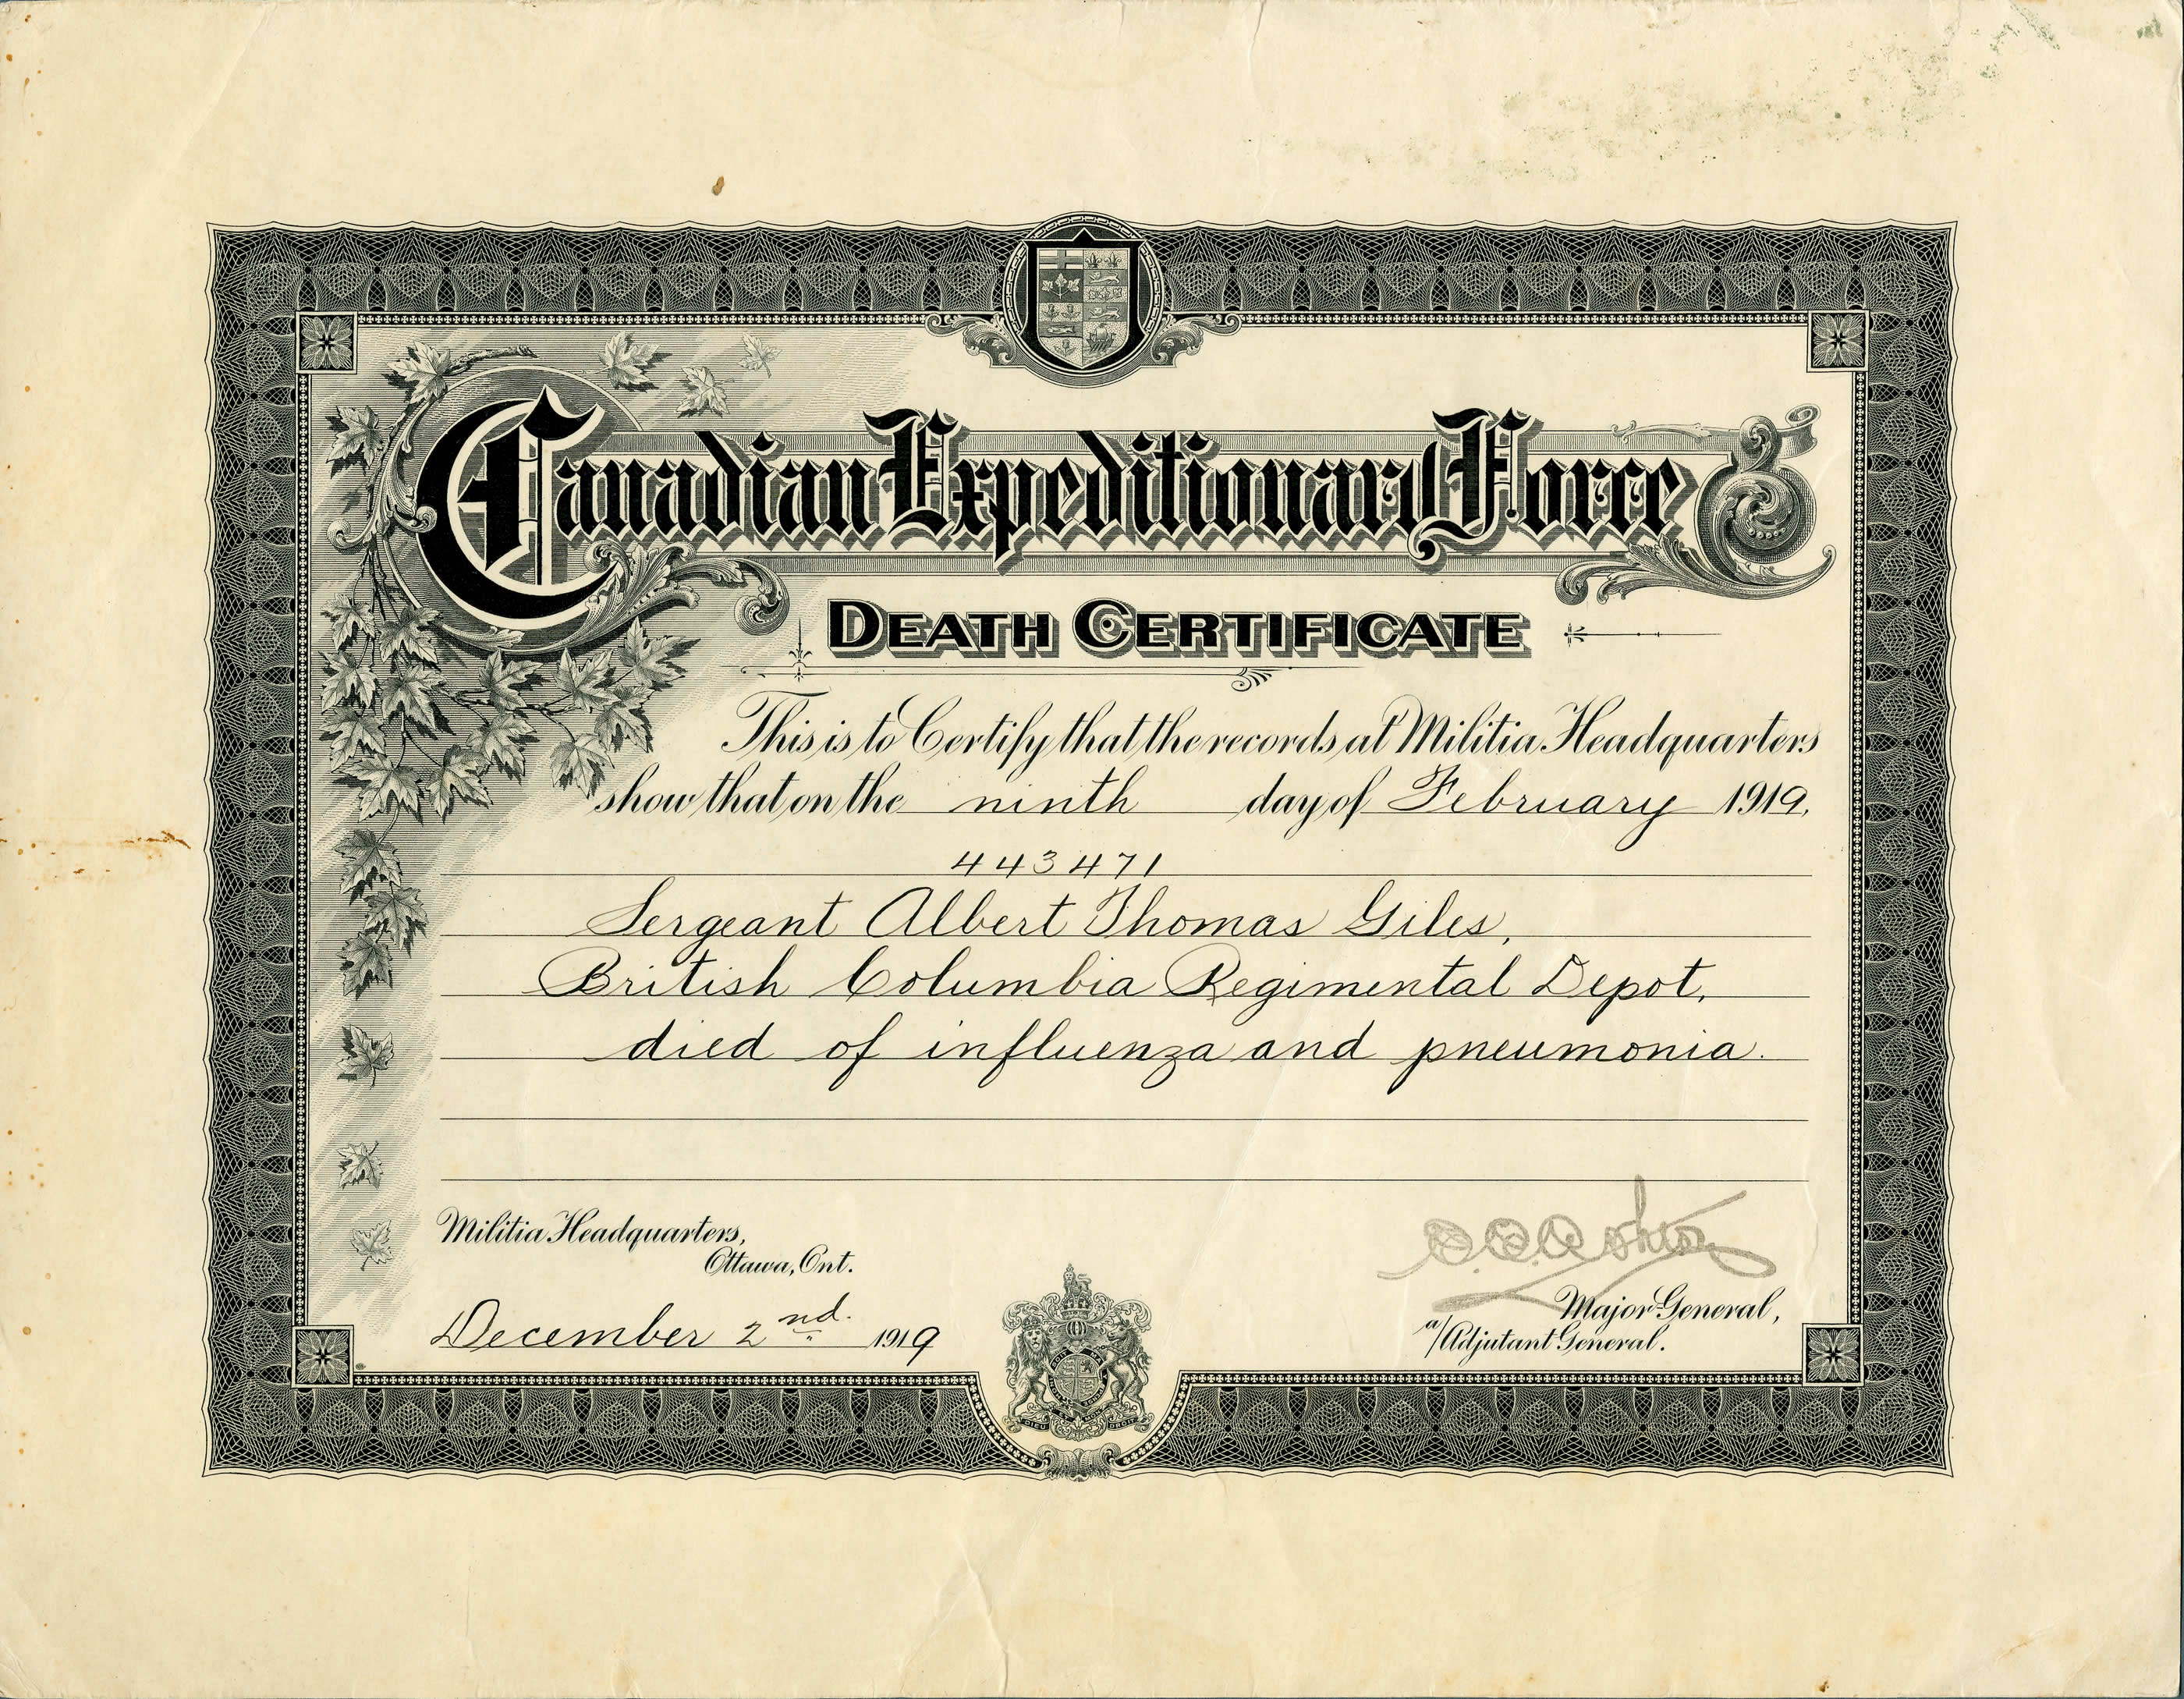 Canadian Expeditionary Force
DEATH CERTIFICATE
This is to Certify that the records at Militia Headquarters
show that on the ninth day of February 1919.
443471
Sergeant Albert Thomas Giles,
British Columbia Regimental Depot,
died of influenza and pneumonia.
Militia Headquarters,
Ottawa, Ont.
December 2nd. 1919
Major General,
a/Adjutant General.
DIEU ET MON DROIT